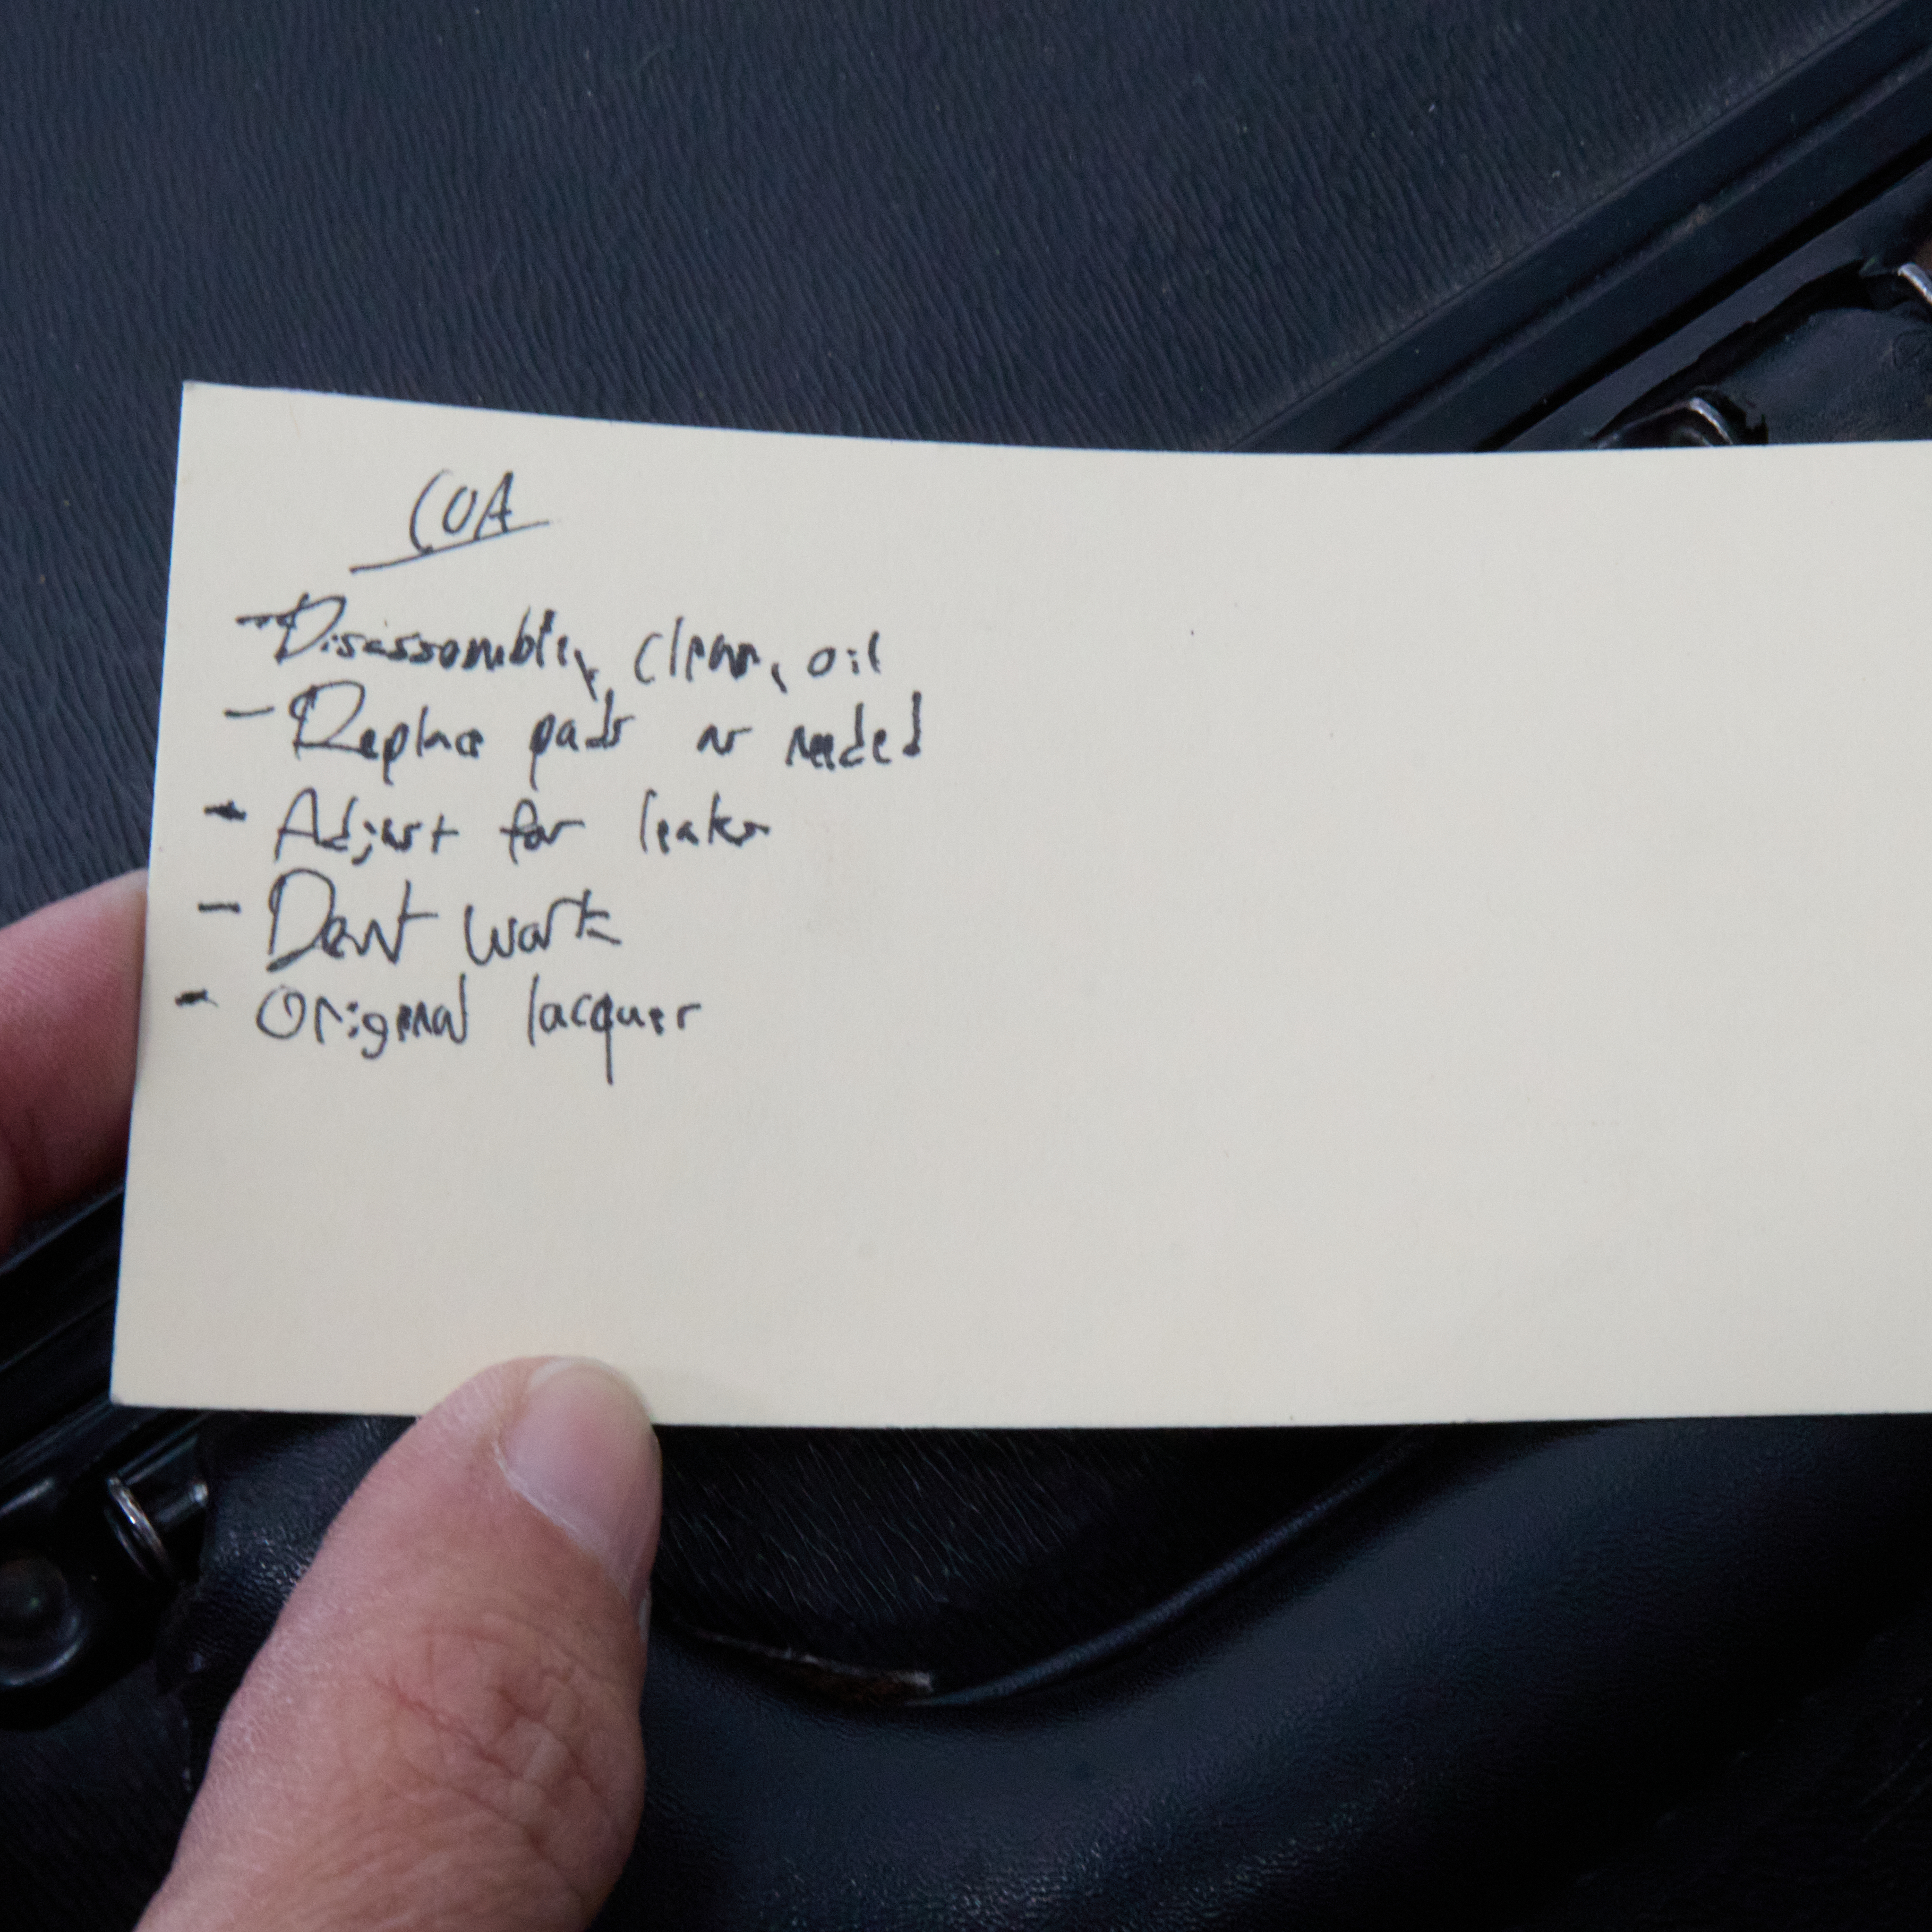 COA
- Disassemble, clean, oil
- Replace pads as needed
- Adjust for leaks
- Dent work
- Original lacquer